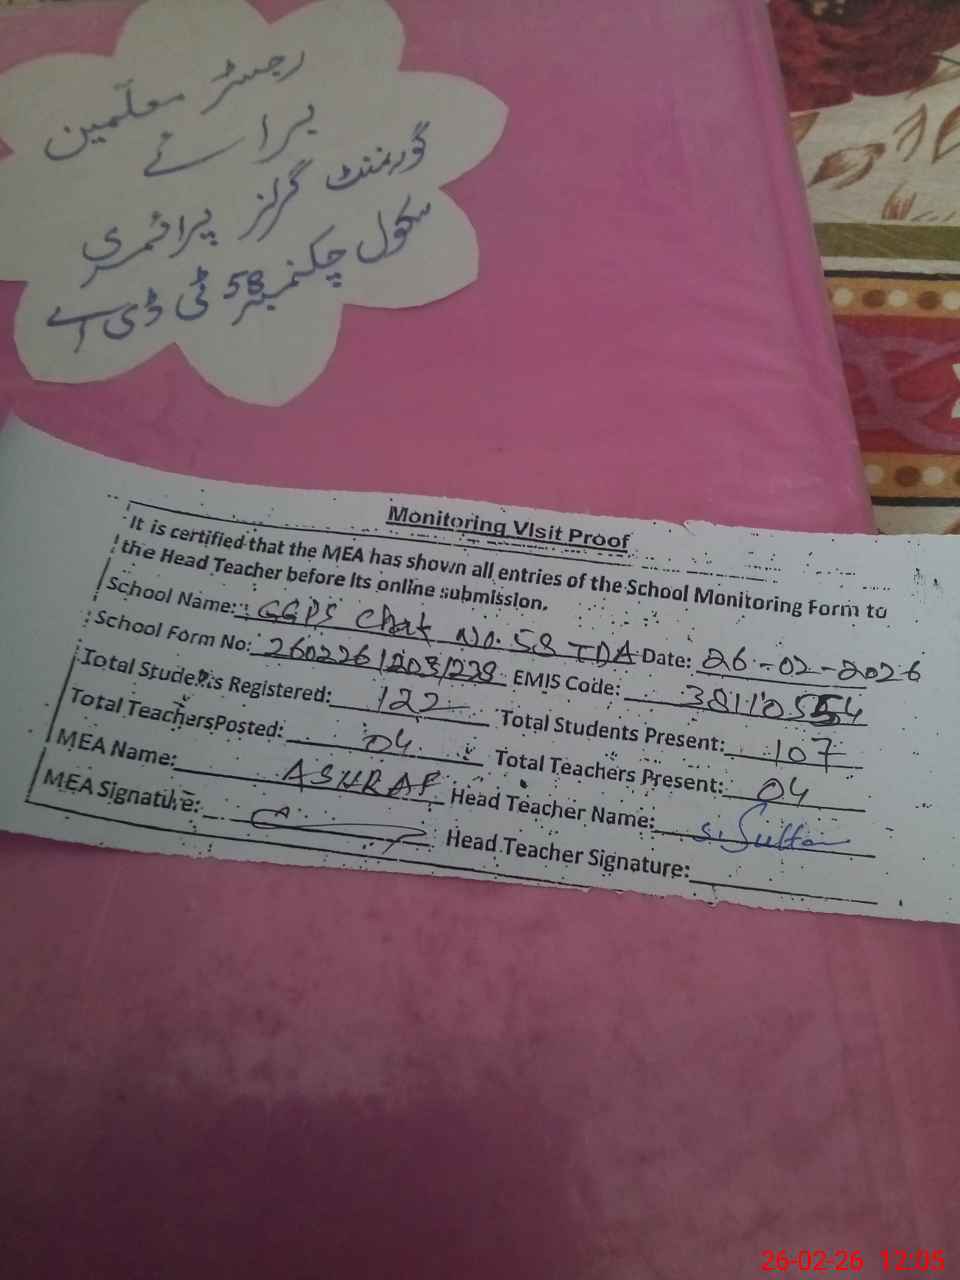 رجسٹر معلّمین
برائے
گورنمنٹ گرلز پرائمری
سکول چکنمبر 58 ٹی ڈی اے
Monitoring Visit Proof
It is certified that the MEA has shown all entries of the School Monitoring Form to
the Head Teacher before its online submission.
School Name: GGPS Chak No. 58 TDA Date: 26-02-2026
School Form No: 260226/203/229 EMIS Code: 38110554
Total Students Registered: 122 Total Students Present: 107
Total Teachers Posted: 04 Total Teachers Present: 04
MEA Name: ASHRAF Head Teacher Name: S. Sultan
MEA Signature: Head Teacher Signature:
26-02-26 12:05